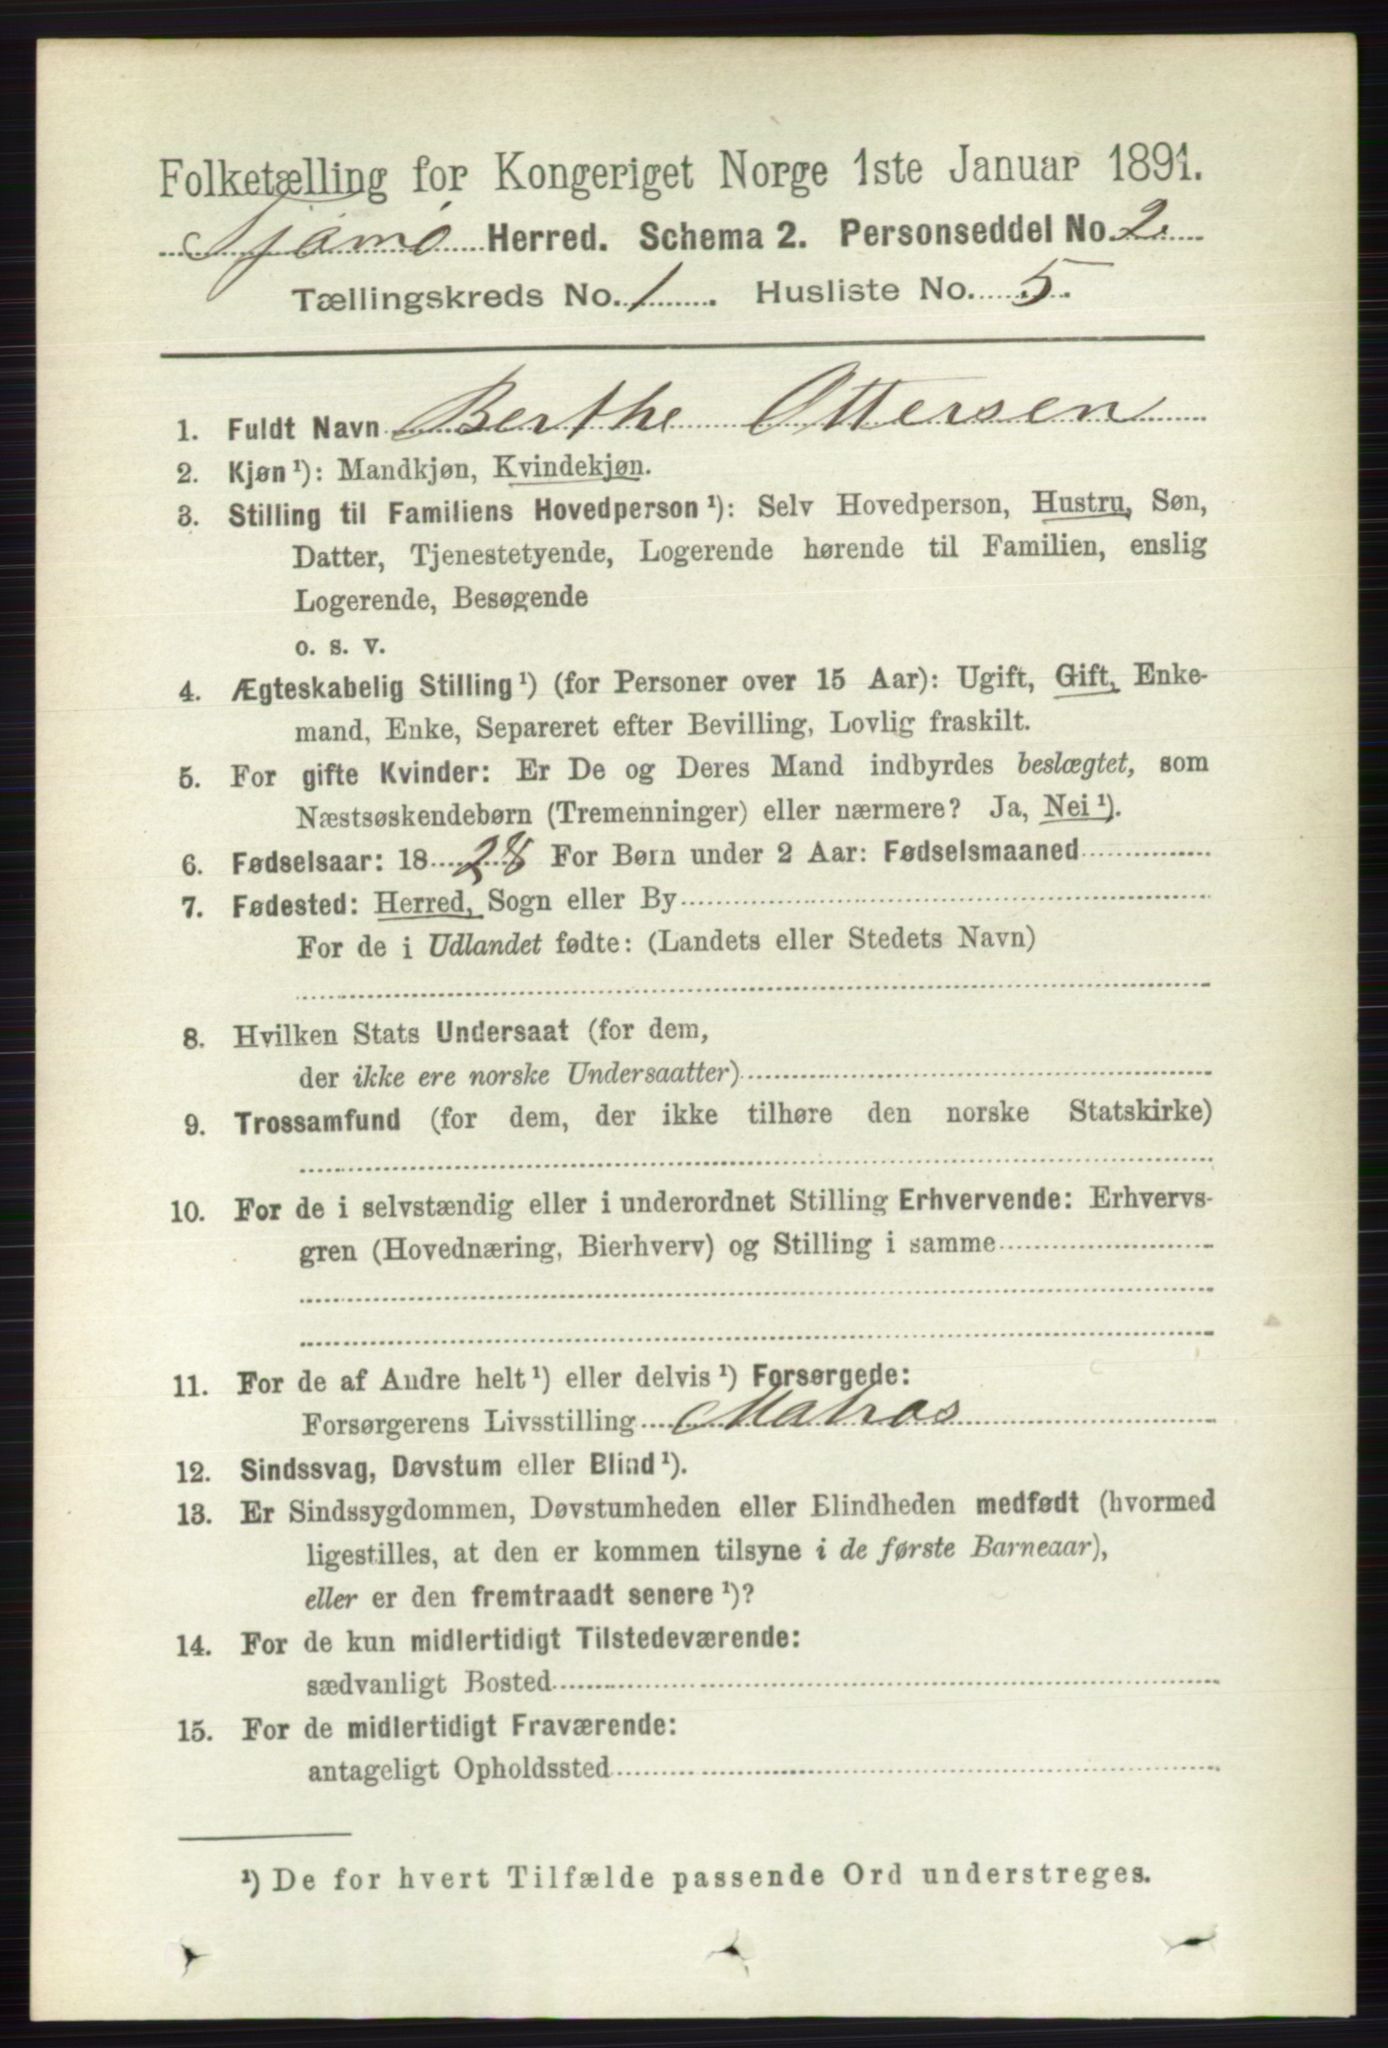 Folketælling for Kongeriget Norge 1ste Januar 1891.
Tjømø Herred. Schema 2. Personseddel No. 2.
Tællingskreds No. 1. Husliste No. 5.
1. Fuldt Navn Berthe Ottersen
2. Kjøn ¹): Mandkjøn, Kvindekjøn.
3. Stilling til Familiens Hovedperson ¹): Selv Hovedperson, Hustru, Søn,
Datter, Tjenestetyende, Logerende hørende til Familien, enslig
Logerende, Besøgende
o. s. v.
4. Ægteskabelig Stilling ¹) (for Personer over 15 Aar): Ugift, Gift, Enke-
mand, Enke, Separeret efter Bevilling, Lovlig fraskilt.
5. For gifte Kvinder: Er De og Deres Mand indbyrdes beslægtet, som
Næstsøskendebørn (Tremenninger) eller nærmere? Ja, Nei ¹).
6. Fødselsaar: 18 28 For Børn under 2 Aar: Fødselsmaaned
7. Fødested: Herred, Sogn eller By
For de i Udlandet fødte: (Landets eller Stedets Navn)
8. Hvilken Stats Undersaat (for dem,
der ikke ere norske Undersaatter)
9. Trossamfund (for dem, der ikke tilhøre den norske Statskirke)
10. For de i selvstændig eller i underordnet Stilling Erhvervende: Erhvervs-
gren (Hovednæring, Bierhverv) og Stilling i samme
11. For de af Andre helt ¹) eller delvis ¹) Forsørgede:
Forsørgerens Livsstilling Matros
12. Sindssvag, Døvstum eller Blind ¹).
13. Er Sindssygdommen, Døvstumheden eller Blindheden medfødt (hvormed
ligestilles, at den er kommen tilsyne i de første Barneaar),
eller er den fremtraadt senere ¹)?
14. For de kun midlertidigt Tilstedeværende:
sædvanligt Bosted
15. For de midlertidigt Fraværende:
antageligt Opholdssted
¹) De for hvert Tilfælde passende Ord understreges.